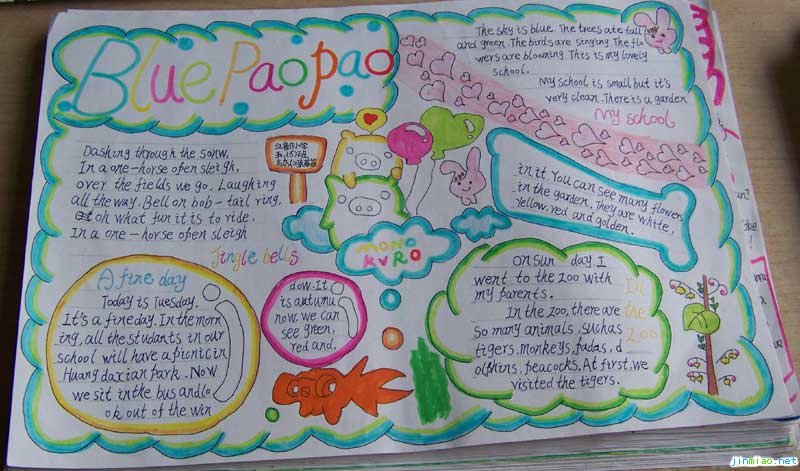 Blue Paopao
The sky is blue. The trees ate tall
and green. The birds are singing. The flo
wers are blooming. This is my lovely
school.
My school is small but it's
very clean. There is a garden
My school
in it. You can see many flowers
in the garden. They are white,
yellow. red and golden.
Dashing through the sonw,
In a one-horse open sleigh,
over the fields we go, Laughing
all the way. Bell on bob-tail ring.
oh what fun it is to ride,
In a one-horse open sleigh
Jingle bells
MONO
KURO
A fine day
Today is Tuesday.
It's a fineday. In the morn
ing, all the studants in our
school will have a picnic in
Huang daxian park. Now
we sit in the bus and lo
ok out of the win
dow. It
is autumu
now. we can
see green,
red and.
on sun day. I
went to the zoo with
my parents.
In the zoo, there are
so many animals, suchas
tigers. monkeys, padas, d
olphins, peacocks. At first, we
visited the tigers.
In
the
Zoo
jinmiao.net